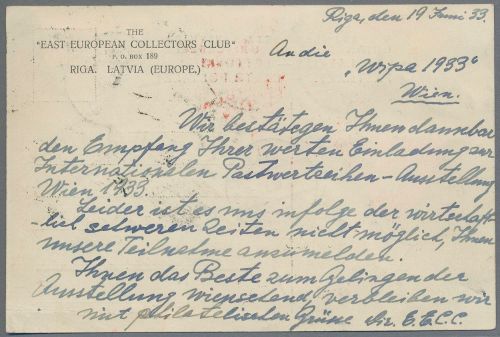 Riga, den 19 Juni 33.
THE
"EAST EUROPEAN COLLECTORS CLUB"
P. O. BOX 189
RIGA. LATVIA (EUROPE.)
An die
"Wipa 1933"
Wien.
Wir bestätegen Ihnen dankbar
den Empfang Ihrer werten Einladung zur
Internationalen Postwertzeihen-Ausstellung
Wien 1933.
Leider ist es uns infolge der wirtschaft
-lich schweren Zeiten nicht möglich, Ihnen
unsere Teilnahme anzumelden.
Ihnen das Beste zum Gelingen der
Ausstellung wünschend, verbleiben wir
mit philatelischen Grüsse Dir. E.E.C.C.